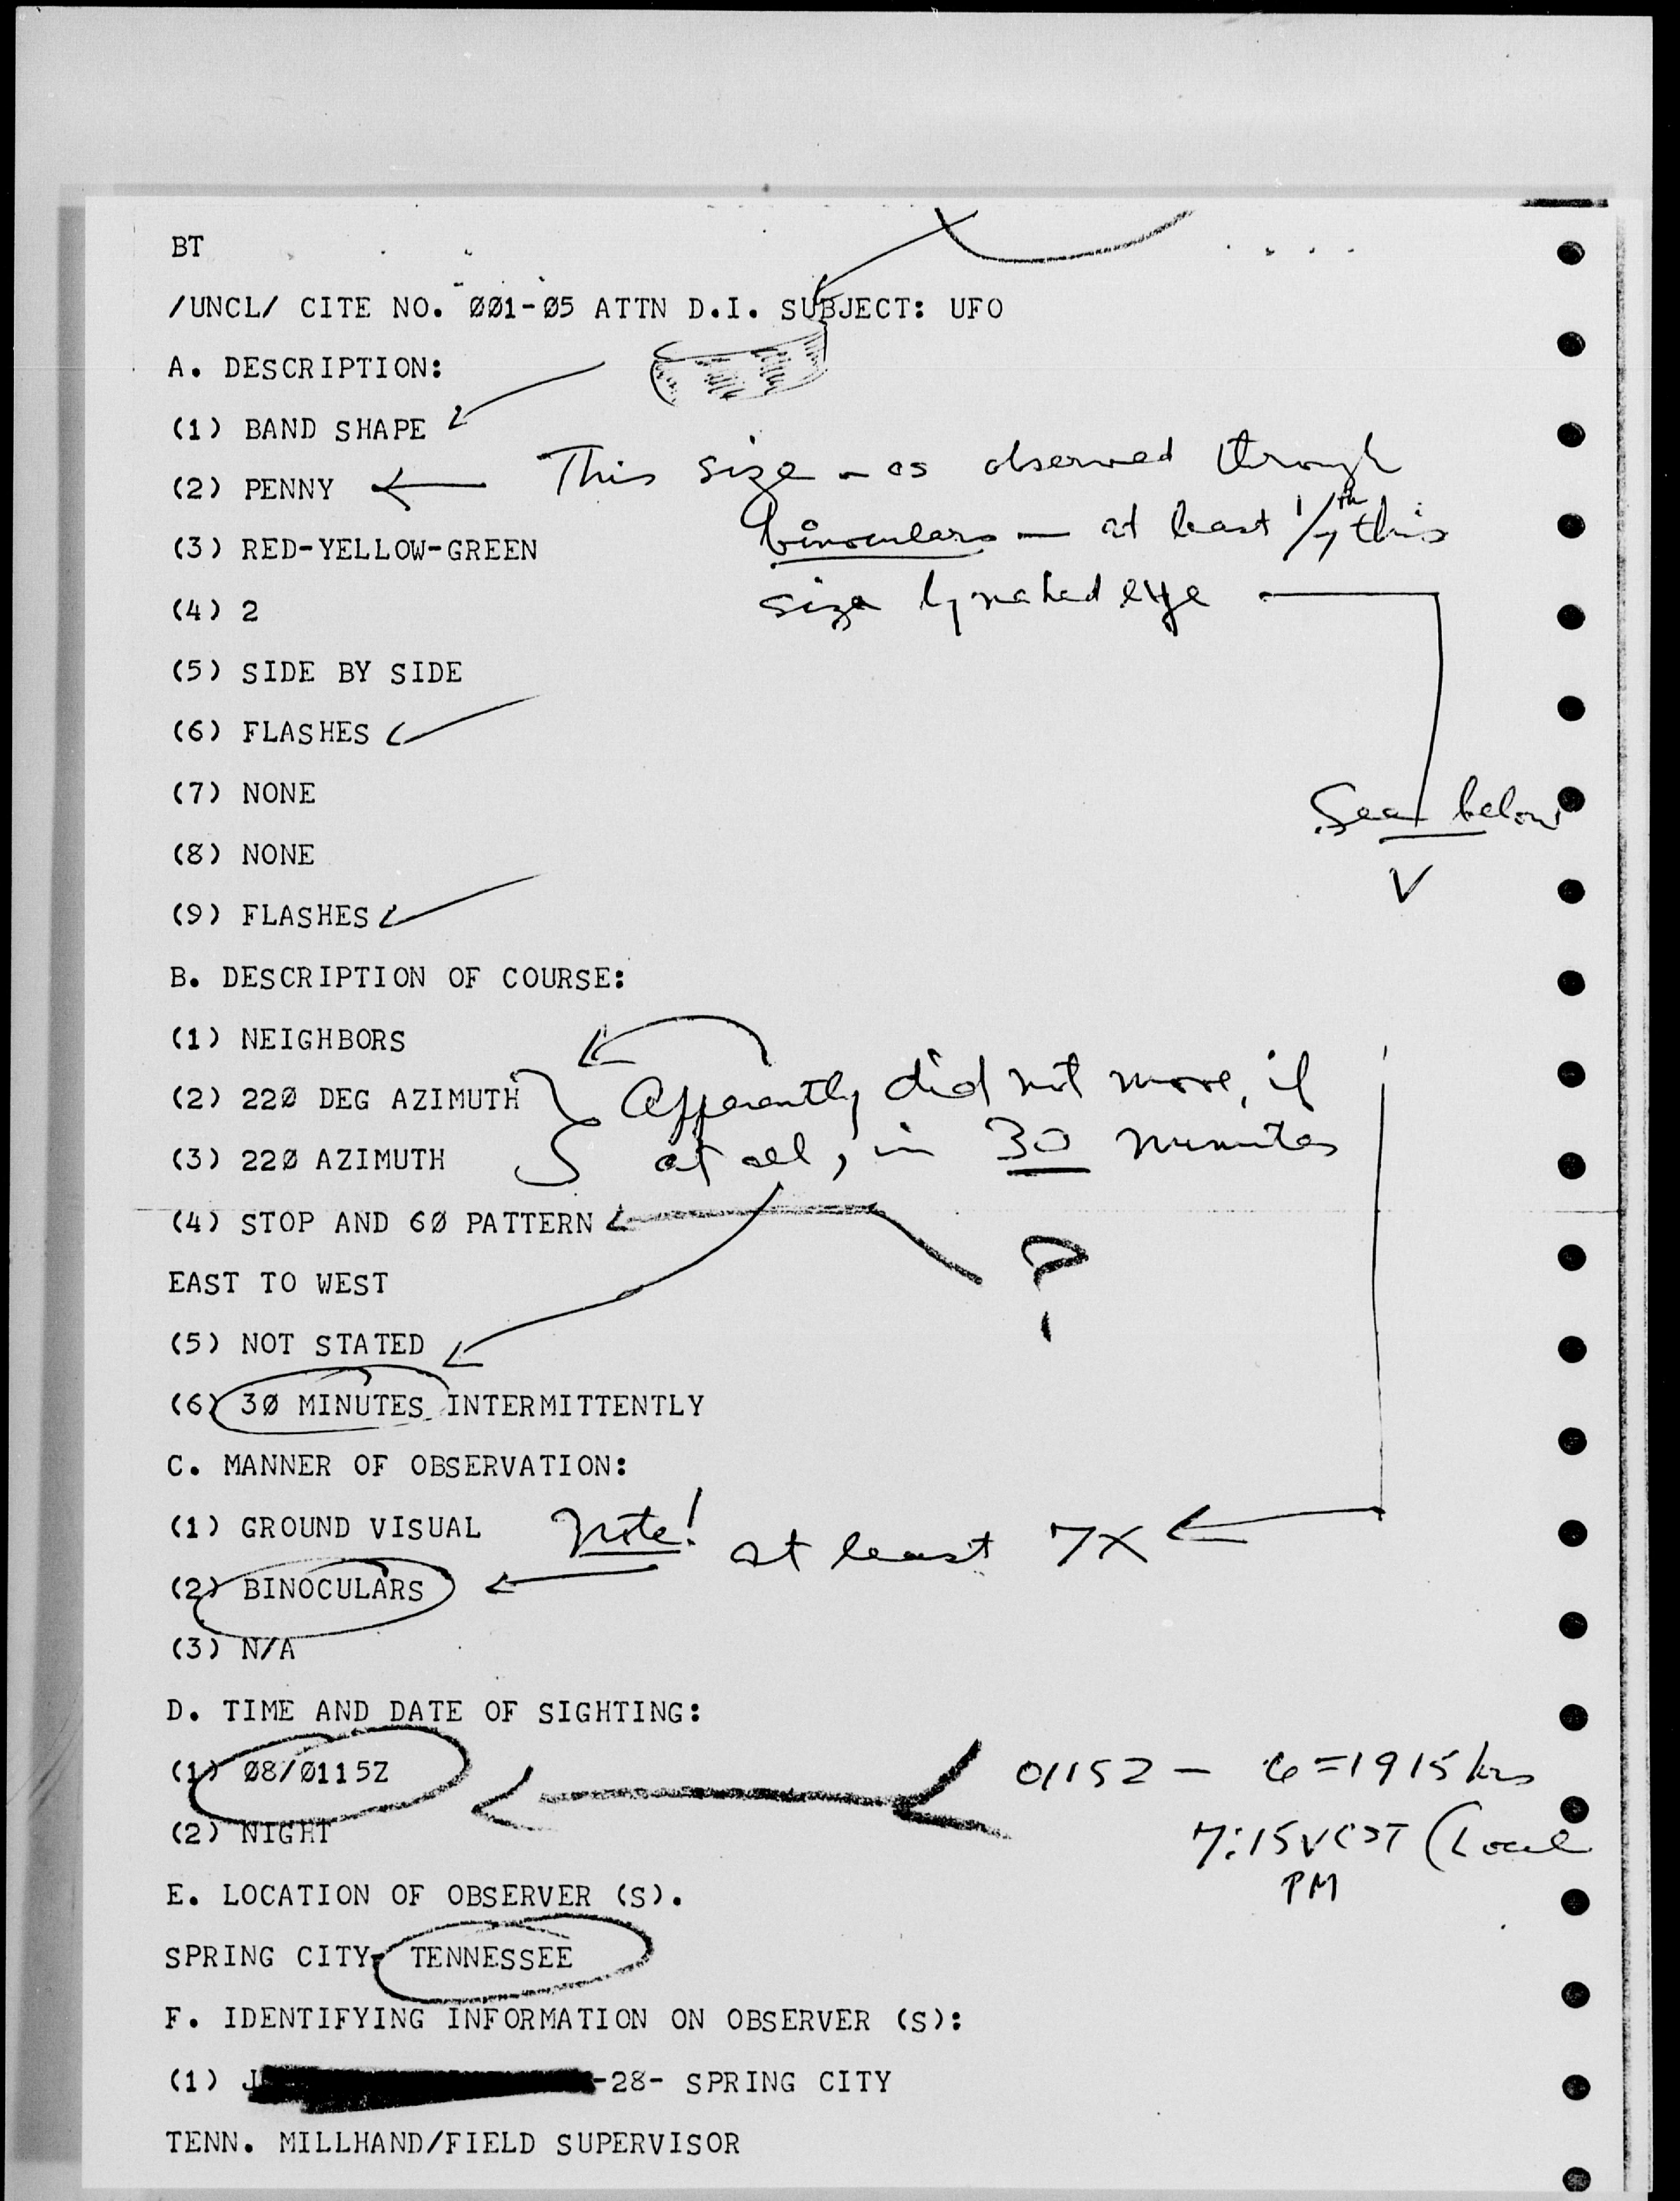 BT
/UNCL/ CITE NO. ØØ1-Ø5 ATTN D.I. SUBJECT: UFO
A. DESCRIPTION:
(1) BAND SHAPE
(2) PENNY
This size - as observed through
binoculars — at least 1/7th this
size by naked eye
(3) RED-YELLOW-GREEN
(4) 2
(5) SIDE BY SIDE
(6) FLASHES
(7) NONE
See below
(8) NONE
(9) FLASHES
B. DESCRIPTION OF COURSE:
(1) NEIGHBORS
(2) 22Ø DEG AZIMUTH
Apparently did not move, if
at all, in 30 minutes
(3) 22Ø AZIMUTH
(4) STOP AND 6Ø PATTERN
?
EAST TO WEST
(5) NOT STATED
(6) 3Ø MINUTES INTERMITTENTLY
C. MANNER OF OBSERVATION:
(1) GROUND VISUAL
Note! at least 7X
(2) BINOCULARS
(3) N/A
D. TIME AND DATE OF SIGHTING:
(1) Ø8/Ø115Z
0115Z - 6=1915 hrs
(2) NIGHT
7:15 CST (Local
PM
E. LOCATION OF OBSERVER (S).
SPRING CITY- TENNESSEE
F. IDENTIFYING INFORMATION ON OBSERVER (S):
(1) J -28- SPRING CITY
TENN. MILLHAND/FIELD SUPERVISOR